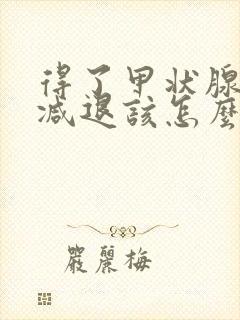 得了甲状腺
减退该怎麽
嚴麗梅